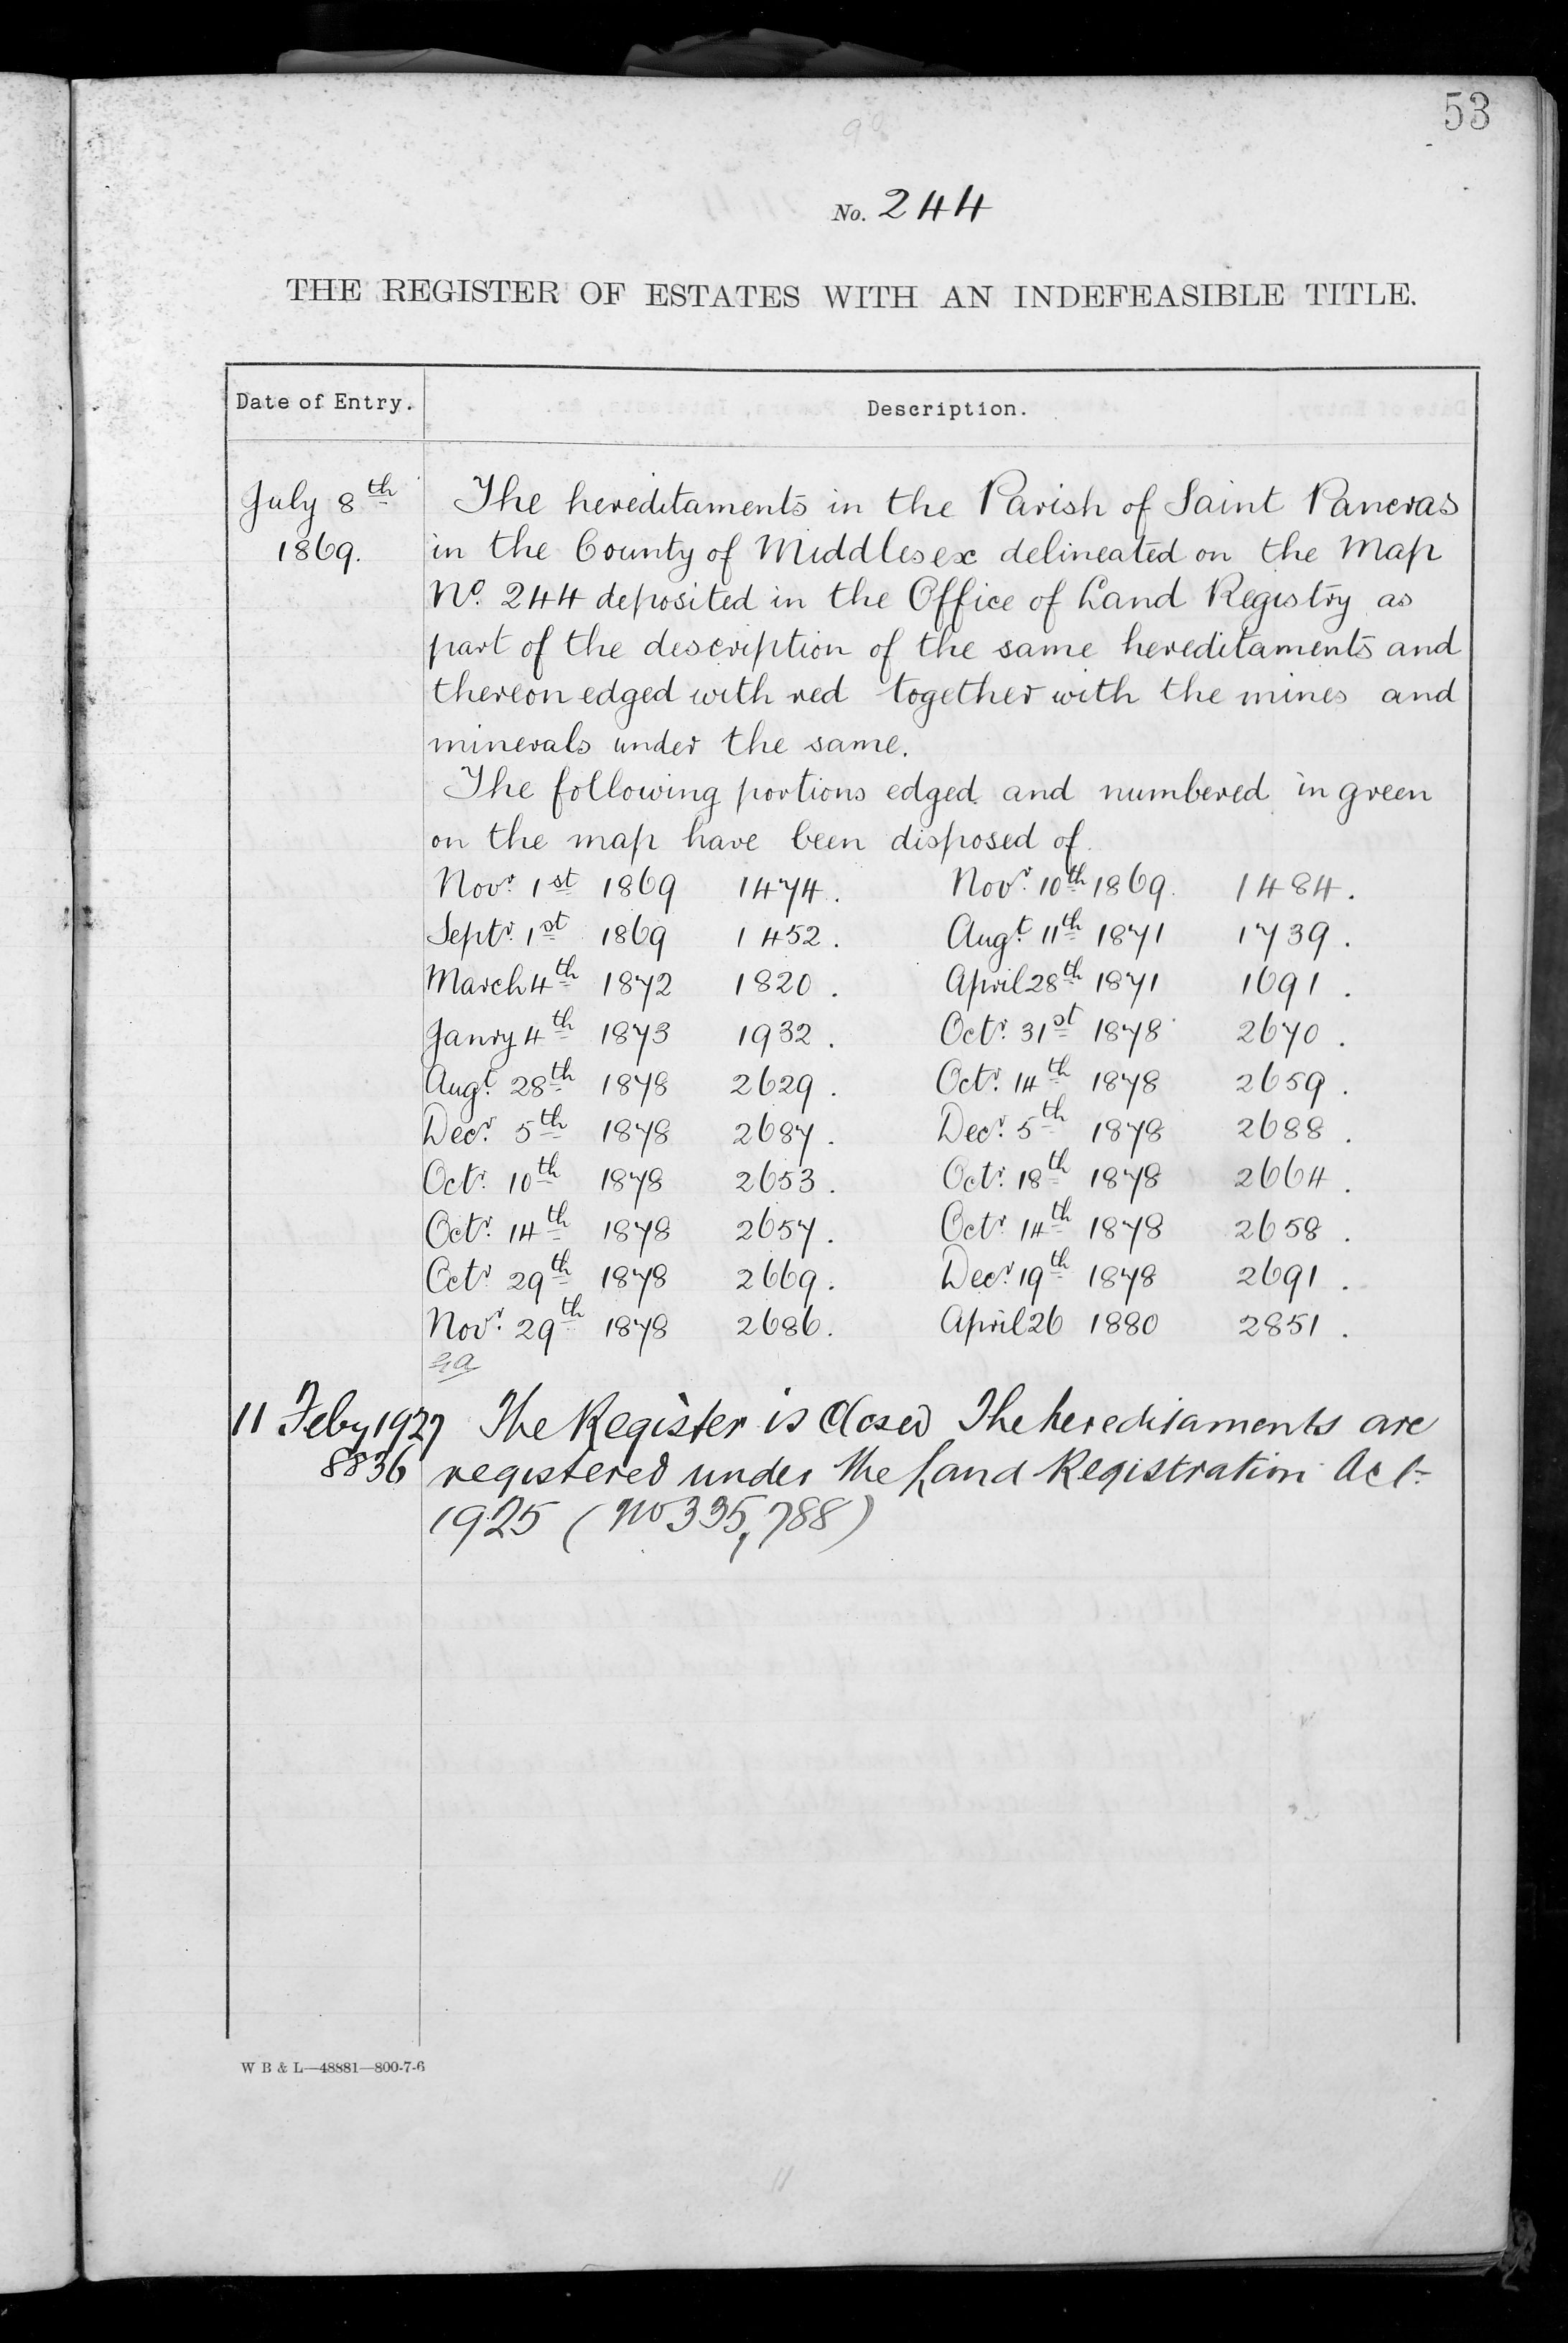 53
98
No. 244
THE REGISTER OF ESTATES WITH AN INDEFEASIBLE TITLE.
Date of Entry. Description.
July 8th The hereditaments in the Parish of Saint Pancras
1869. in the County of Middlesex delineated on the Map
No. 244 deposited in the Office of Land Registry as
part of the description of the same hereditaments and
thereon edged with red together with the mines and
minerals under the same.
The following portions edged and numbered in green
on the map have been disposed of.
Novr. 1st 1869 1474. Novr. 10th 1869. 1484.
Septr. 1st 1869 1452. Augt. 11th 1871 1739.
March 4th 1872 1820. April 28th 1871 1691.
Janry 4th 1873 1932. Octr. 31st 1878 2670.
Augt. 28th 1878 2629. Octr. 14th 1878 2659.
Decr. 5th 1878 2687. Decr. 5th 1878 2688.
Octr. 10th 1878 2653. Octr. 18th 1878 2664.
Octr. 14th 1878 2657. Octr. 14th 1878 2658.
Octr. 29th 1878 2669. Decr. 19th 1878 2691.
Novr. 29th 1878 2686. April 26 1880 2851.
11 Feby 1927 The Register is closed The hereditaments are
8836 registered under the Land Registration Act
1925 (No 335,788)
W B & L—48881—800-7-6